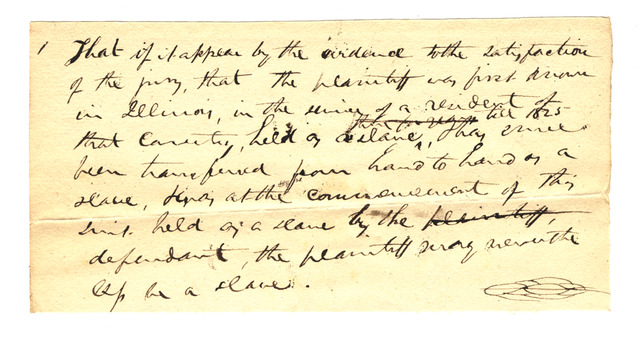 1 That if it appear by the evidence to the satisfaction
of the jury, that the plaintiff was first known
in Illinois, in the service of a resident of
that Country, held as a slave, till 1825
has since
been transferred from hand to hand as a
slave, & was at the commencement of this
suit held as a slave by the plaintiff,
defendant, the plaintiff may neverthe
less be a slave.